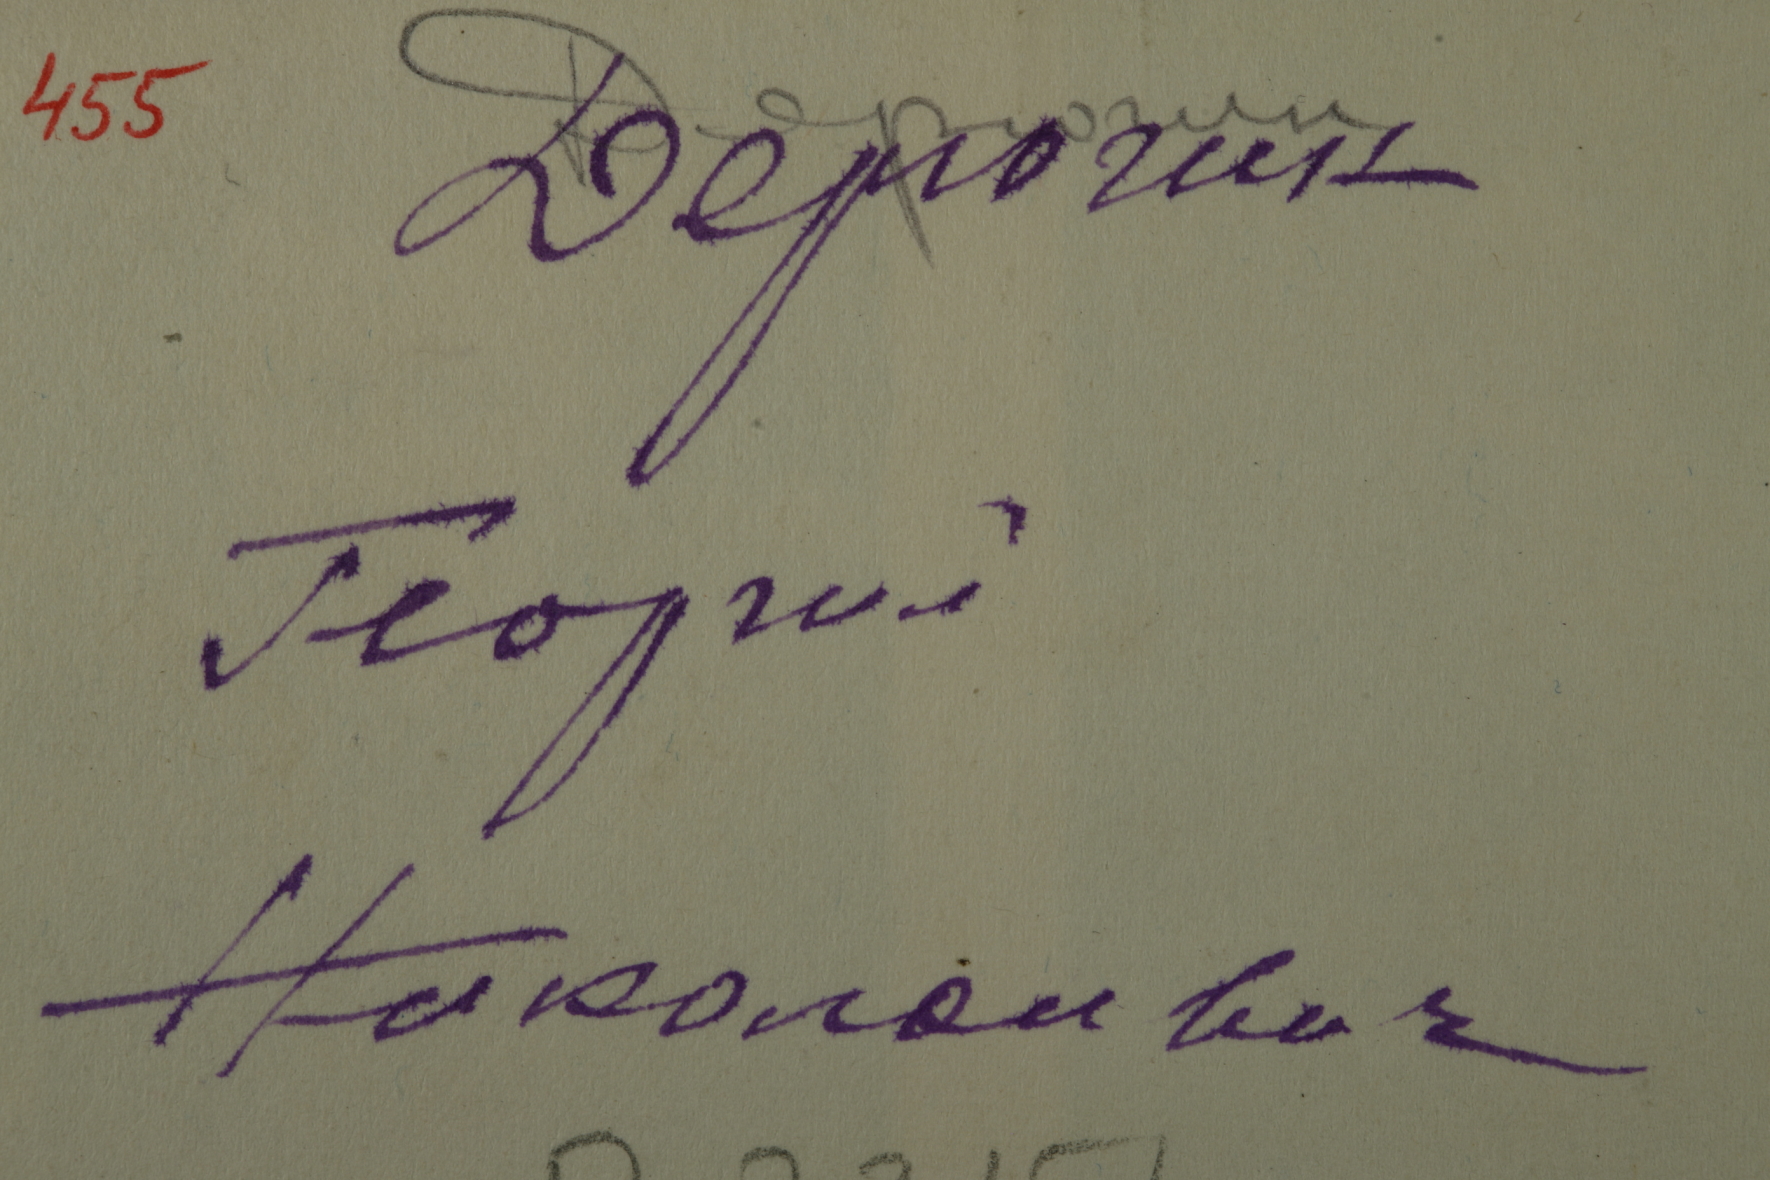 455
Дерюгин
Дерюгин
Георгий
Николаевич